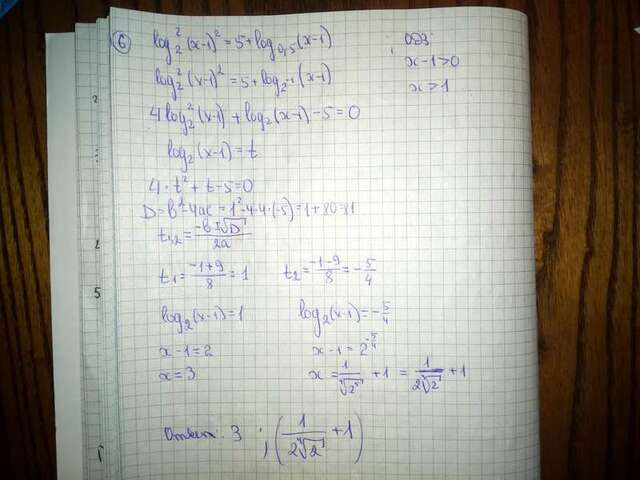 ⑥ log₂²(x-1)² = 5 + log₀,₅(x-1) ОДЗ:
log₂²(x-1)² = 5 + log₂⁻¹(x-1) x-1>0
4log₂²(x-1) + log₂(x-1) - 5 = 0 x>1
log₂(x-1) = t
4·t² + t - 5 = 0
D = b² - 4ac = 1² - 4·4·(-5) = 1 + 80 = 81
t₁,₂ = (-b ± √D)/2a
t₁ = (-1+9)/8 = 1 t₂ = (-1-9)/8 = -5/4
log₂(x-1) = 1 log₂(x-1) = -5/4
x-1 = 2 x-1 = 2^(-5/4)
x = 3 x = 1/⁴√2⁵ + 1 = 1/(2⁴√2) + 1
Ответ: 3; (1/(2⁴√2) + 1)